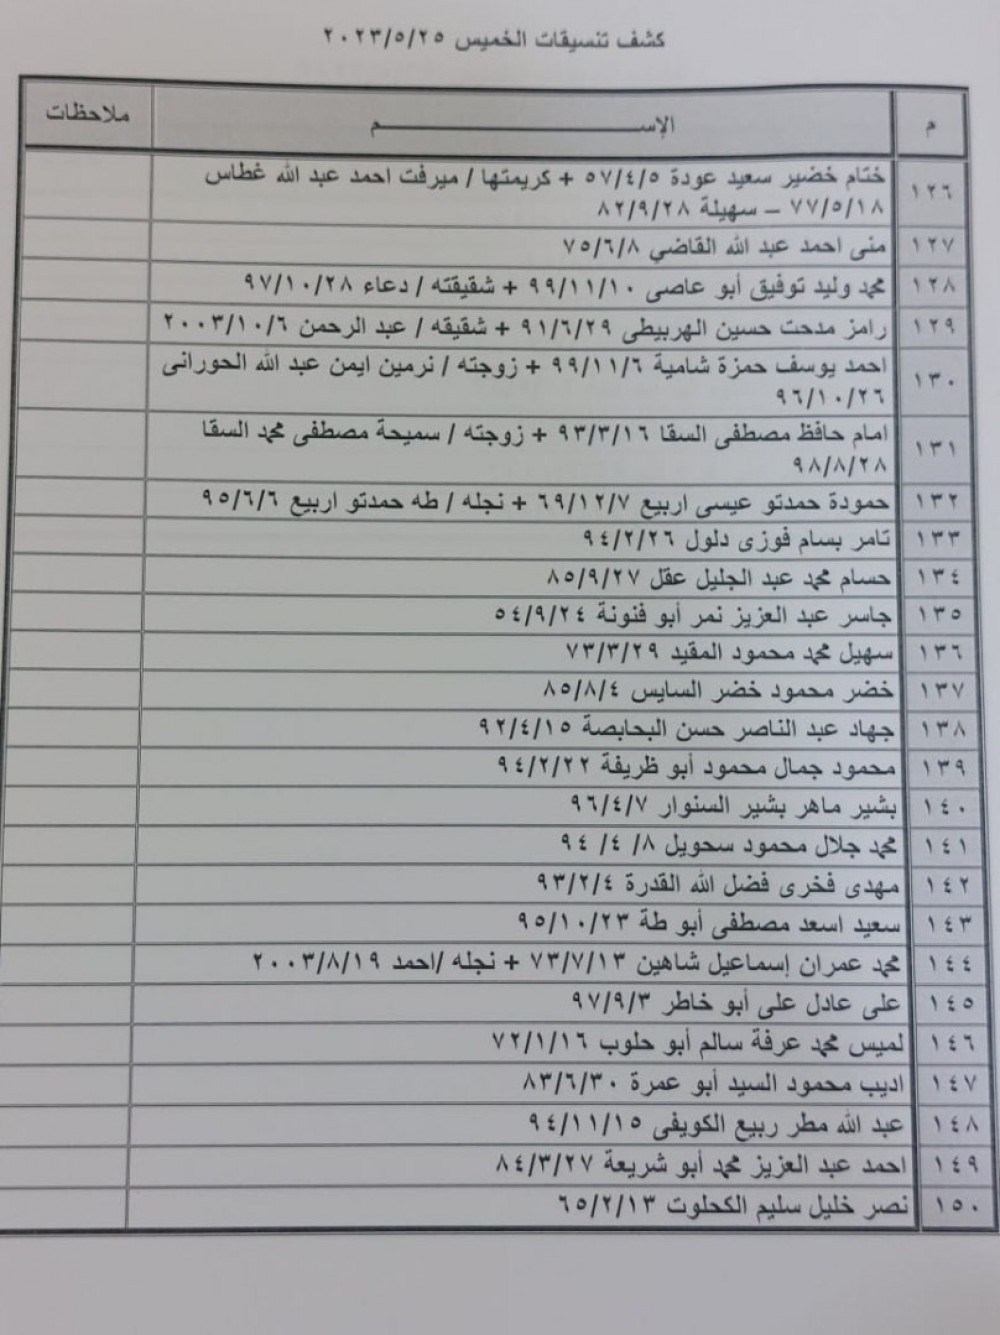 كشف تنسيقات الخميس ٢٠٢٣/٥/٢٥
م الإســـــــــــــم ملاحظات
١٢٦ ختام خضير سعيد عودة ٥٧/٤/٥ + كريمتها / ميرفت احمد عبد الله غطاس
٧٧/٥/١٨ – سهيلة ٨٢/٩/٢٨
١٢٧ منى احمد عبد الله القاضي ٧٥/٦/٨
١٢٨ محمد وليد توفيق أبو عاصى ٩٩/١١/١٠ + شقيقته / دعاء ٩٧/١٠/٢٨
١٢٩ رامز مدحت حسين الهربيطى ٩١/٦/٢٩ + شقيقه / عبد الرحمن ٢٠٠٣/١٠/٦
١٣٠ احمد يوسف حمزة شامية ٩٩/١١/٦ + زوجته / نرمين ايمن عبد الله الحورانى
٩٦/١٠/٢٦
١٣١ امام حافظ مصطفى السقا ٩٣/٣/١٦ + زوجته / سميحة مصطفى محمد السقا
٩٨/٨/٢٨
١٣٢ حمودة حمدتو عيسى اربيع ٦٩/١٢/٧ + نجله / طه حمدتو اربيع ٩٥/٦/٦
١٣٣ تامر بسام فوزى دلول ٩٤/٢/٢٦
١٣٤ حسام محمد عبد الجليل عقل ٨٥/٩/٢٧
١٣٥ جاسر عبد العزيز نمر أبو فنونة ٥٤/٩/٢٤
١٣٦ سهيل محمد محمود المقيد ٧٣/٣/٢٩
١٣٧ خضر محمود خضر السايس ٨٥/٨/٤
١٣٨ جهاد عبد الناصر حسن البحابصة ٩٢/٤/١٥
١٣٩ محمود جمال محمود أبو ظريفة ٩٤/٢/٢٢
١٤٠ بشير ماهر بشير السنوار ٩٦/٤/٧
١٤١ محمد جلال محمود سحويل ٨/ ٤/ ٩٤
١٤٢ مهدى فخرى فضل الله القدرة ٩٣/٢/٤
١٤٣ سعيد اسعد مصطفى أبو طة ٩٥/١٠/٢٣
١٤٤ محمد عمران إسماعيل شاهين ٧٣/٧/١٣ + نجله /احمد ٢٠٠٣/٨/١٩
١٤٥ على عادل على أبو خاطر ٩٧/٩/٣
١٤٦ لميس محمد عرفة سالم أبو حلوب ٧٢/١/١٦
١٤٧ اديب محمود السيد أبو عمرة ٨٣/٦/٣٠
١٤٨ عبد الله مطر ربيع الكويفى ٩٤/١١/١٥
١٤٩ احمد عبد العزيز محمد أبو شريعة ٨٤/٣/٢٧
١٥٠ نصر خليل سليم الكحلوت ٦٥/٢/١٣